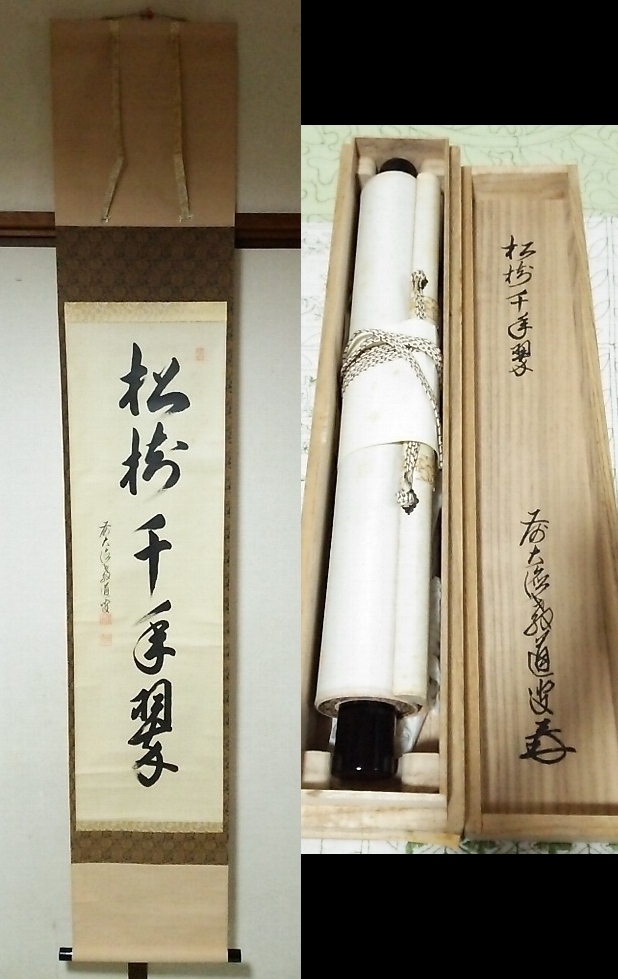 松樹千年翠
前大徳義道
松樹千年翠
前大徳義道